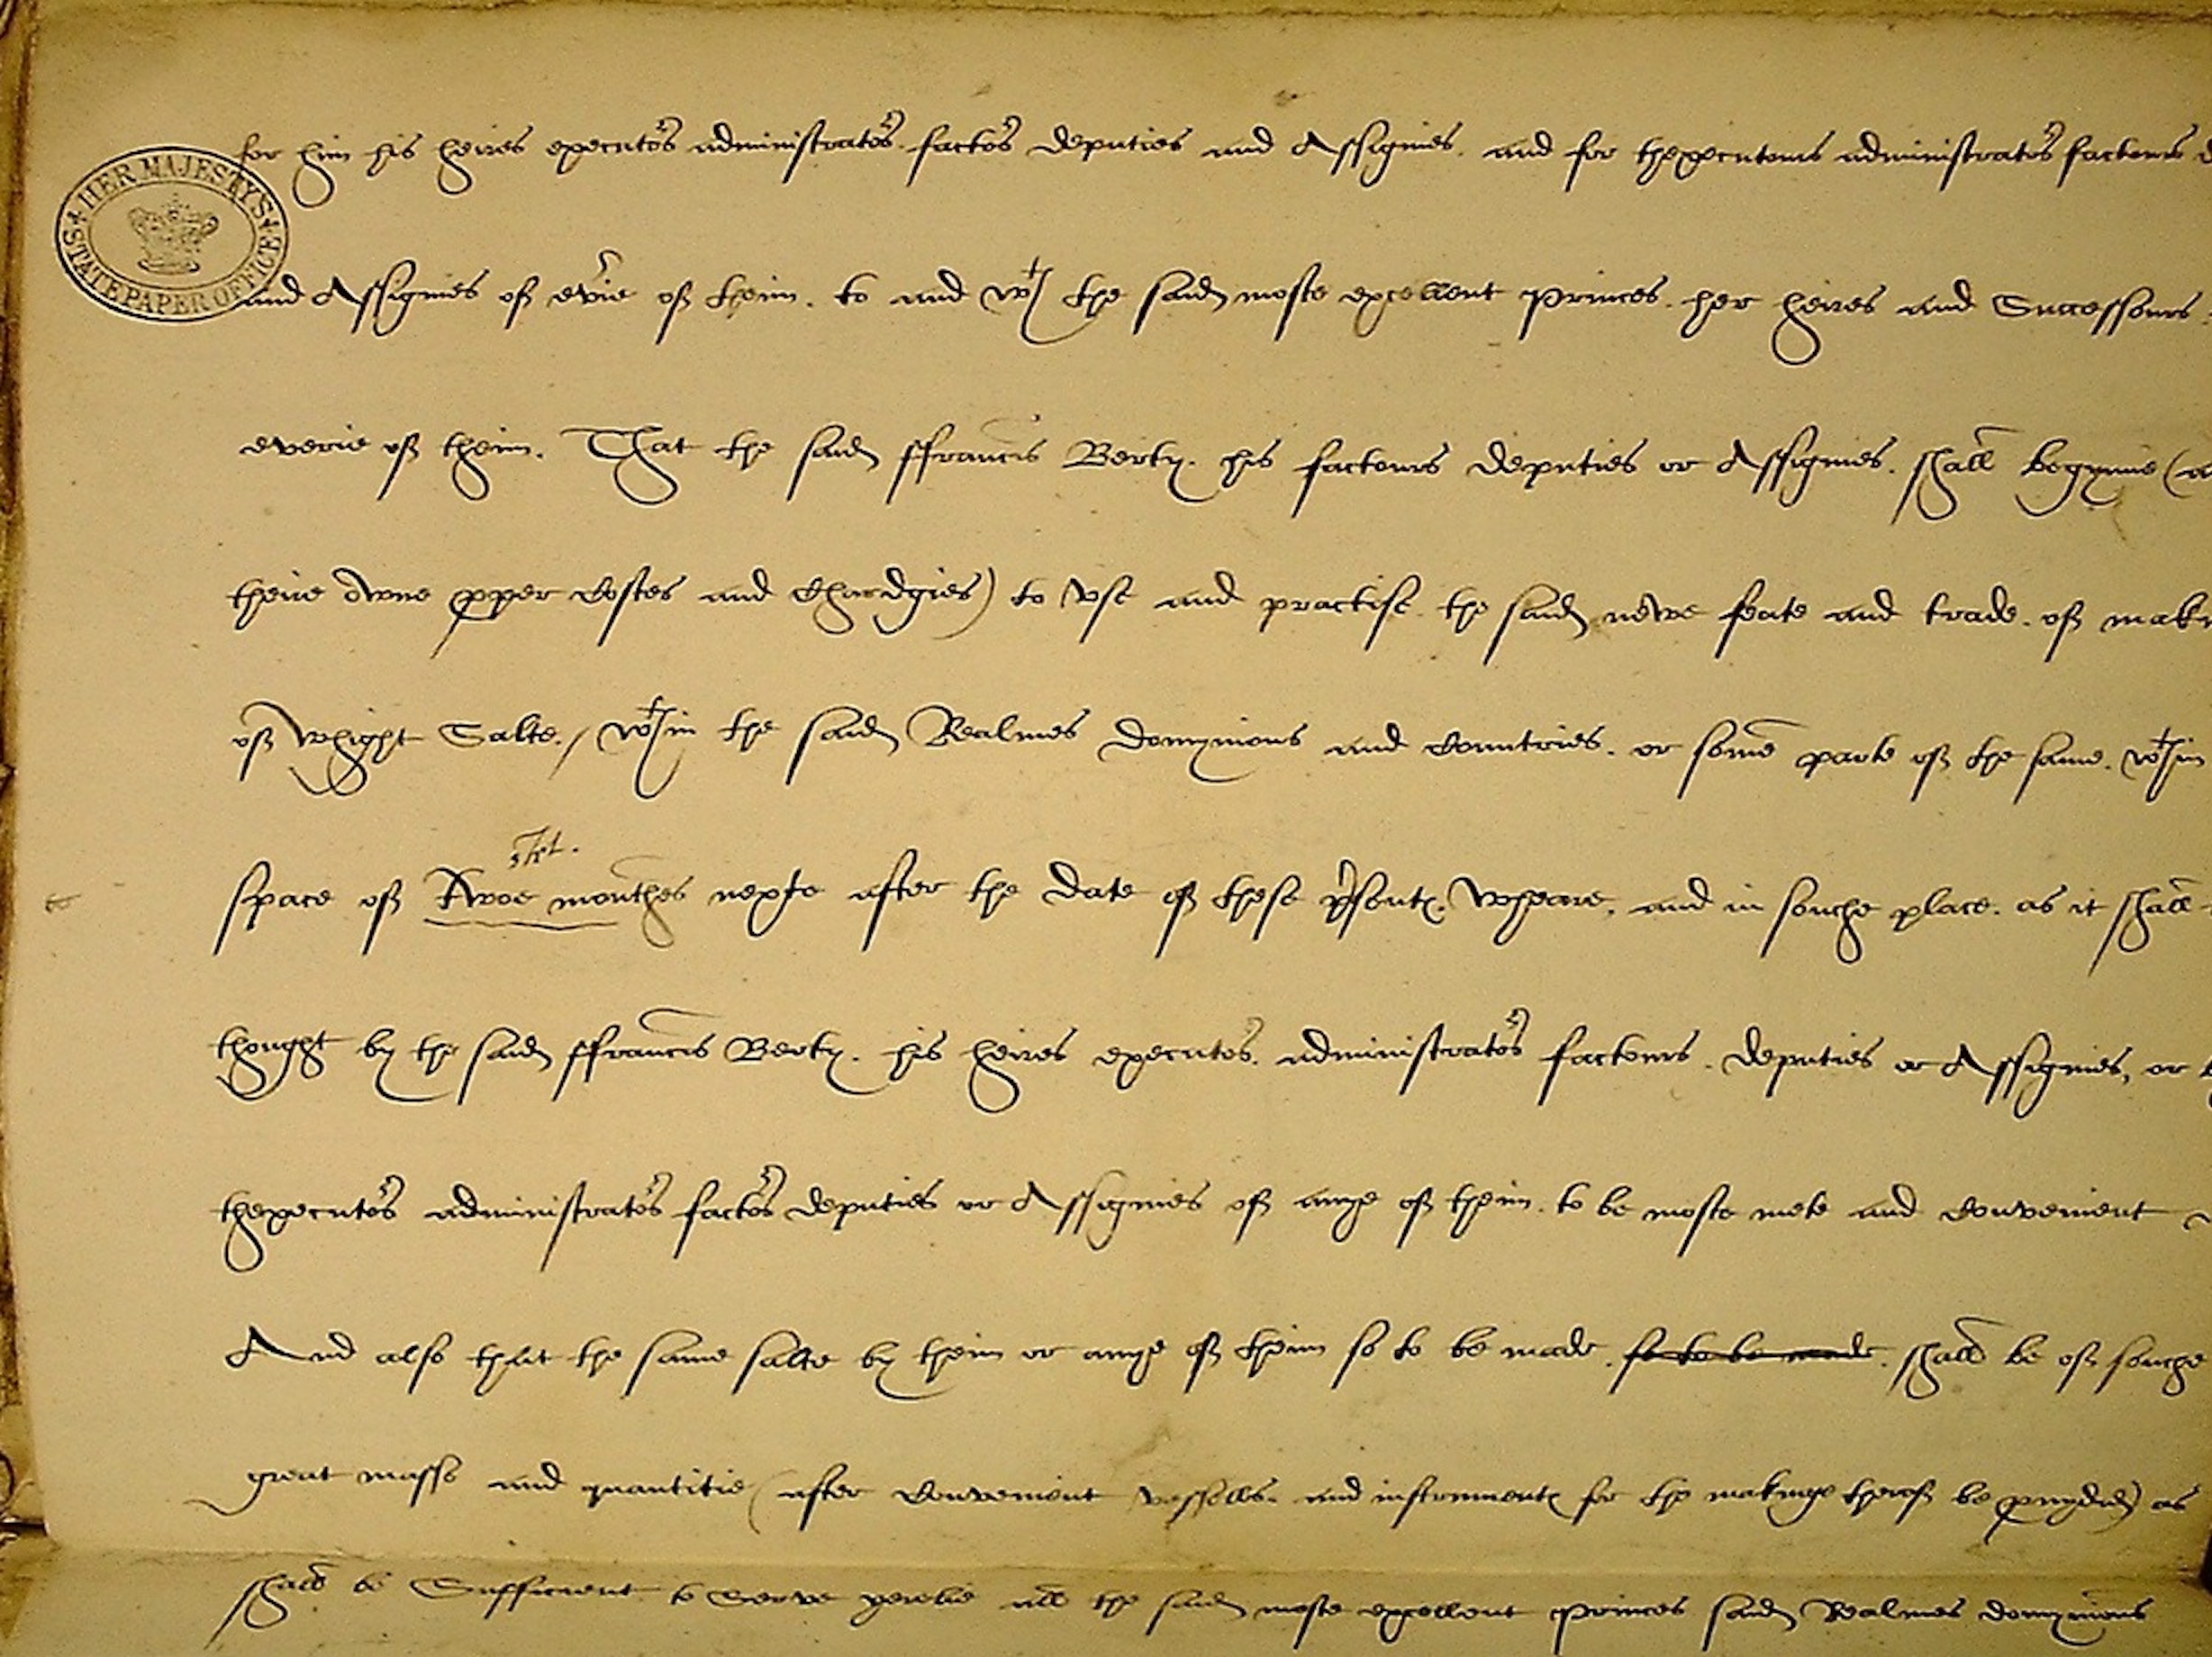 HER MAJESTY'S STATE PAPER OFFICE
for him his heires executors administrators. factors deputies and Assignies. and for thexecutours administrators factours
and Assignies of evrie of theim. to and wt the said moste excellent Princes. her heires and Successours
everie of theim. That the said ffrancis Berty. his factours deputies or Assignies. shall begynne (
theire owne pper Costes and Chardgies) to vse and practise. the said newe feate and trade. of mak
of whight Salte./ wtin the said Realmes domynions and Countries. or some parte of the same. wtin
stet.
space of Twoe monthes nexte after the date of these psents. wheare. and in souche place. as it shall
thought by the said ffrancis Berty. his heires executors. administrators factours. deputies or Assignies, or
thexecutors administrators factors deputies or Assignies of anye of theim. to be moste mete and Convenient
And also that the same salte by theim or anye of theim so to be made. so to be made. shall be of souche
great masse and quantitie (after Convenient vessells. and instruments for the makinge therof be pvyded) as
shall be Sufficient to Serve yerelie all the said moste excellent Princes said Realmes domynions